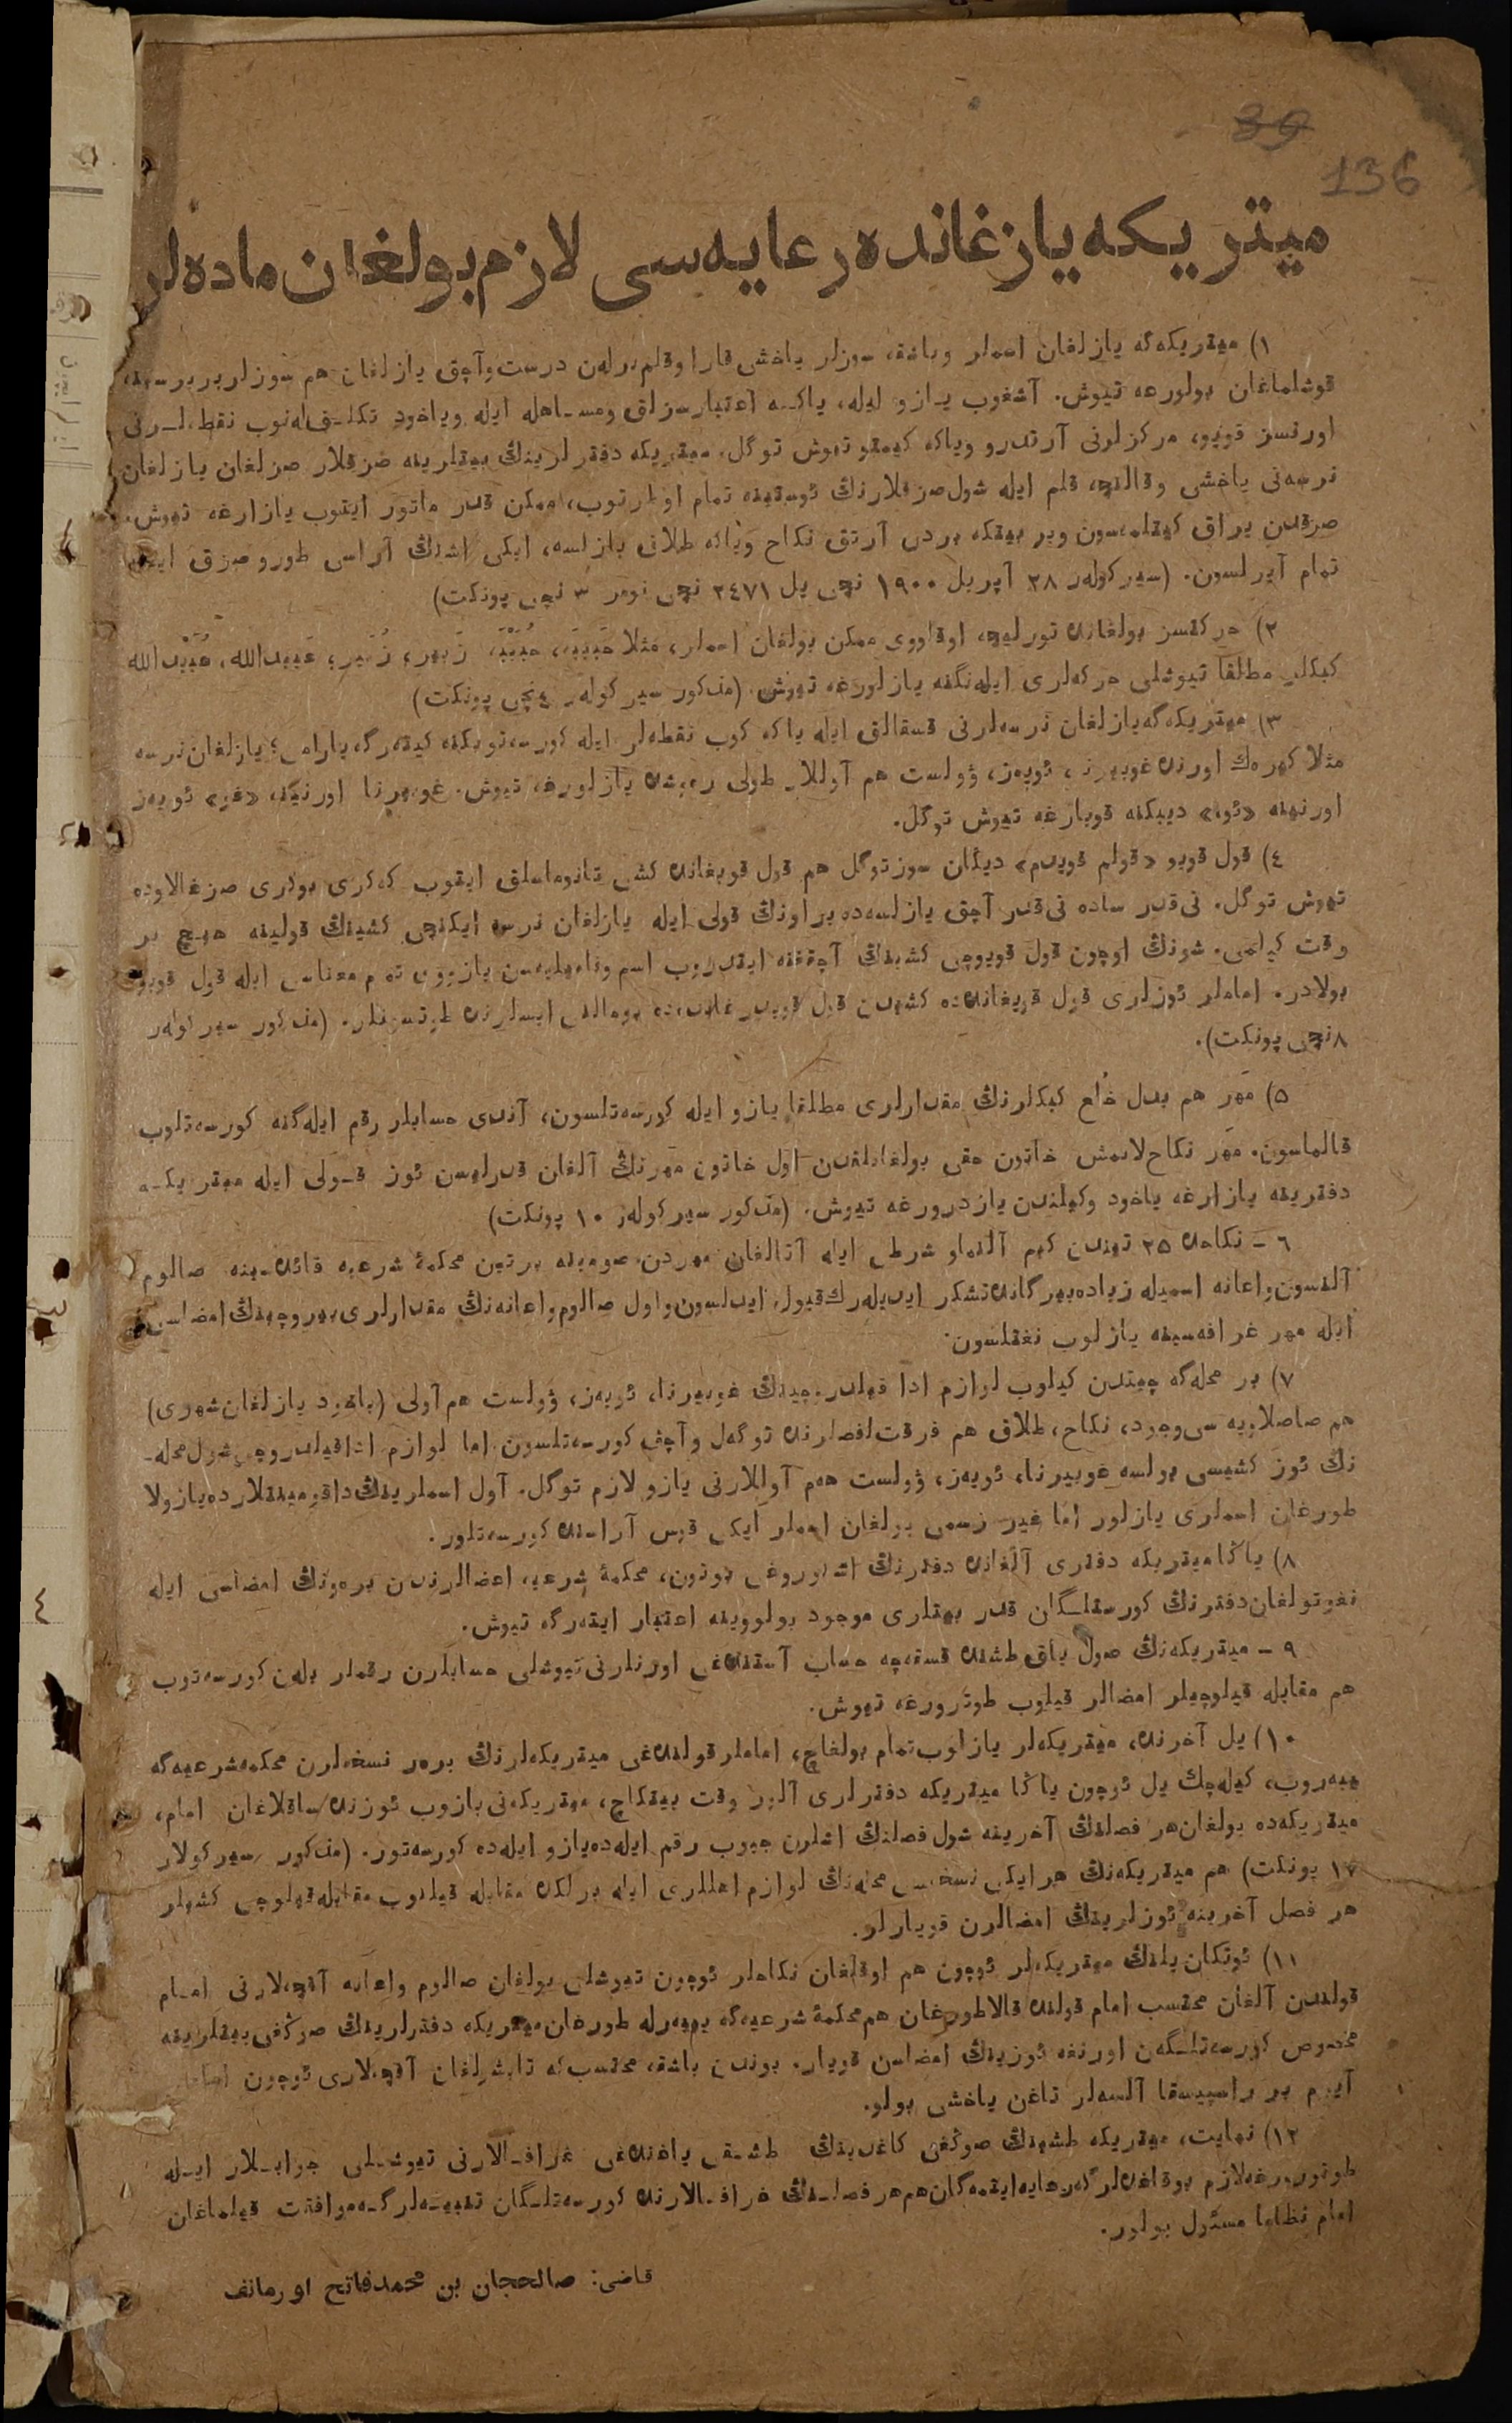 39
136
میتریکه یازغانده رعایه‌سی لازم بولغان ماده‌لر
۱) میتریکه‌گه یازلغان اسملر وباشقه سوزلر یاخشی قارا وقلم برلەن درست وآچق یازلغان هم سوزلر بر برسینه
قوشلماغان بولورعه تیوش. آشغوب یازو ایله، یاکه اعتبارسزلق ومساهله ایله ویاخود تکلف‌لەنوب نقطه‌لرنی
اورنسز قویو، مرکزلرنی آرتدرو ویاکه کیمتو تیوش توگل. میتریکه دفترلرینڭ بیتلرینه صزقلار صزلغان یازلغان
نرسەنی یاخشی وقالنچه قلم ایله شول صزقلارنڭ ئوستینه تمام اولرتوب، ممکن قدر ماتور ایتوب یازارغه تیوش.
صزقدن یراق کیتلمەسون وبر بیتکه بردن آرتق نکاح ویاکه طلاق یازلسه، ایکی اشنڭ آراسی طورو صزق ایله
تمام آیرلسون. (سیرکولەر ۲۸ آپریل ۱۹۰۰ نچی یل ۲۴۷۱ نچی نومر ۳ نچی پونکت)
۲) حرکتسز بولغانده تورلیچه اوقلووی ممکن بولغان اسملر، مثلا حَبِیبَه، حُبَیْبَه، زَبیر؛ زُبَیر؛ عَبیدالله، عُبَیْدالله
کبکلر مطلقا تیوشلی حرکه‌لری ایله‌نگنه یازلورغه تیوش. (مذکور سیرکولەر ٤ نچی پونکت)
۳) میتریکه‌گه یازلغان نرسه‌لرنی قسقالق ایله یاکه کوب نقطه‌لر ایله کورسه‌توبکنه کیتەرگه یارامی؛ یازلغان نرسه
مثلا کیرەك اورنده غوبیرنا، ئویەز، ؤولست هم آوللار طولی رەوشده یازلورغه تیوش. غوبیرنا اورنینه «غو» ئویەز
اورنینه «ئوه» دیبکنه قویارغه تیوش توگل.
٤) قول قویو «قولم قویدم» دیگان سوز توگل هم قول قویغانده کشی تانوماسلق ایتوب کەکری بوکری صزغالاوده
تیوش توگل. نی‌قدر ساده نی‌قدر آچق یازلسه‌ده براونڭ قولی ایله یازلغان نرسه ایکنچی کشینڭ قولینه هیچ بر
وقت کیلمی. شونڭ اوچون قول قویوچی کشینڭ آچقغنه ایتدروب اسم وفامیلیەسن یازووی تمام معناسی ایله قول قویو
بولادر. اماملر ئوزلری قول قویغانده‌ده کشیدن قول قویدرغاندەده بومالنی ایسلرنده طوتسونلر. (مذکور سیرکولەر
۸ نچی پونکت).
۵) مَهر هم بدل خُلع کبکلرنڭ مقدارلری مطلقا یازو ایله کورسەتلسون، آندی حسابلر رقم ایله‌گنه کورسەتلوب
قالماسون. مَهر نکاح‌لانمش خاتون حقی بولغانلقدن اول خاتون مهرنڭ آلغان قدرلیسن ئوز قولی ایله میتریکه
دفترینه یازارغه یاخود وکیلندن یازدرورغه تیوش. (مذکور سیرکولەر ۱۰ پونکت)
٦ – نکاحده ۲۵ تیندن کیم آلنماو شرطی ایله آتالغان مهردن صومینه برتین محکمۀ شرعیه فائدەسینه صالوم
آلنسون واعانه اسمیله زیاده بیرگانده تشکر ایدیلەرك قبول ایدلسون واول صالوم واعانەنڭ مقدارلری بیروچینڭ امضاسی
ایله مهر غرافەسینه یازلوب نغتلسون.
۷) بر محله‌گه چیتدن کیلوب لوازم ادا قیلدروچینڭ غوبیرنا، ئویەز، ؤولست هم آولی (یاخود یازلغان شهری)
هم صاصلاویه سی وجود، نکاح، طلاق هم فرقت لفصلرنده توگەل وآچق کورسەتلسون. اما لوازم ادا قیلدروچی شول محله‌ـ
نڭ ئوز کشیسی بولسه غوبیرنا، ئویەز، ؤولست هەم آوللارنی یازو لازم توگل. آول اسملرینڭ داقومینتلارده یازولا
طورغان اسملری یازلور اما غیر رسمی بولغان اسملر ایکی قوس آراسنده کورسەتلور.
۸) یاڭا میتریکه دفتری آلغانده دفترنڭ اشلوروغی بوتون، محکمۀ شرعیه اعضالرندن برەونڭ امضاسی ایله
نغوتولغان دفترنڭ کورستلگان قدر بیتلری موجود بولووینه اعتبار ایتەرگه تیوش.
۹ – میتریکەنڭ صول یاق طشنده قسقەچه حساب آستنده‌غی اورنلارنی تیوشلی حسابلرن رقملر بلەن کورسەتوب
هم مقابله قیلوچیلر امضالر قیلوب طوترورغه تیوش.
۱۰) یل آخرنده میتریکه‌لر یازلوب تمام بولغاچ، اماملر قولنده‌غی میتریکه‌لرنڭ برەر نسخه‌لرن محکمه شرعیه‌گه
بیەروب، کیله‌چك یل ئوچون یاڭا میتریکه دفترلری آلور وقت بیتکاچ، میتریکەنی یازوب ئوزنده ساقلاغان امام،
میتریکەده بولغان هر فصلنڭ آخرینه شول فصلنڭ اشلرن جیوب رقم ایله‌ده یازو ایله‌ده کورسەتور. (مذکور سیرکولار
۱۷ پونکت) هم میتریکەنڭ هر ایکی نسخەسی محله‌نڭ لوازم اهللری ایله برلکده مقابله قیلنوب مقابله قیلوچی کشیلر
هر فصل آخرینه ئوزلرینڭ امضالرن قویارلر.
۱۱) ئوتکان یلنڭ میتریکه‌لر ئوچون هم اوقلغان نکاحلر ئوچون تیوشلی بولغان صالوم واعانه آقچه‌لارنی امام
قولندن آلغان محتسب امام قولنده قالا طورغان هم محکمۀ شرعیه‌گه بیبەرلە طورغان میتریکه دفترلرینڭ صوڭغی بیتلرینه
مخصوص کورسەتلگەن اورنغه ئوزینڭ امضاسن قویار. بوندن باشقه محتسب‌که تابشرلغان آقچه‌لاری ئوچون
آیرم بر راسپیسقا آلسه‌لر تاغن یاخشی بولور.
۱۲) نهایت، میتریکه طشینڭ صوڭغی کاغدینڭ طشقی یاغنده‌غی غرافالارنی تیوشلی جوابلار ایله
طوتورورغه لازم بوقاغده‌لرگه رعایه ایتمەگان هم هر فصلنڭ غرافالارنده کورسەتلگان تنبیه‌لرگه موافقت قیلماغان
امام نظاما مسئول بولور.
قاضی: صالحجان بن محمدفاتح اورمانف